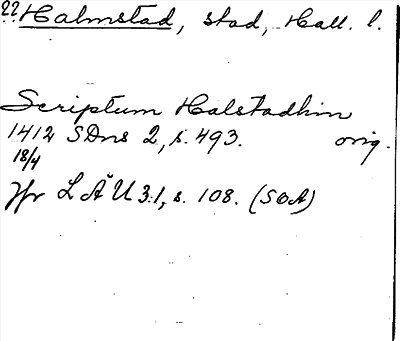 22 Halmstad, stad, Hall. l.
Scriptum Halstadhin
1412 SDns 2, s. 493. orig.
18/4
Jfr LÄU 3:1, s. 108. (SOA)